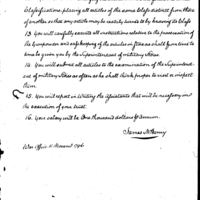 Classifications placing all articles of the same Class distinct from those
of another so that any article may be easily turned to by knowing its Class
13. You will carefully execute all instructions relative to the preservation of
the component and safe keeping of the articles in Store as shall from time to time
be given you by the Superintendant of military Stores
14. You will submit all articles to the examination of the Superintend-
ant of military Stores as often as he shall think proper to visit or inspect
them
15. You will report in writing the assistants that will be necessary in
the execution of your trust
16. Your salary will be One thousand dollars per annum.
James McHenry
War Office